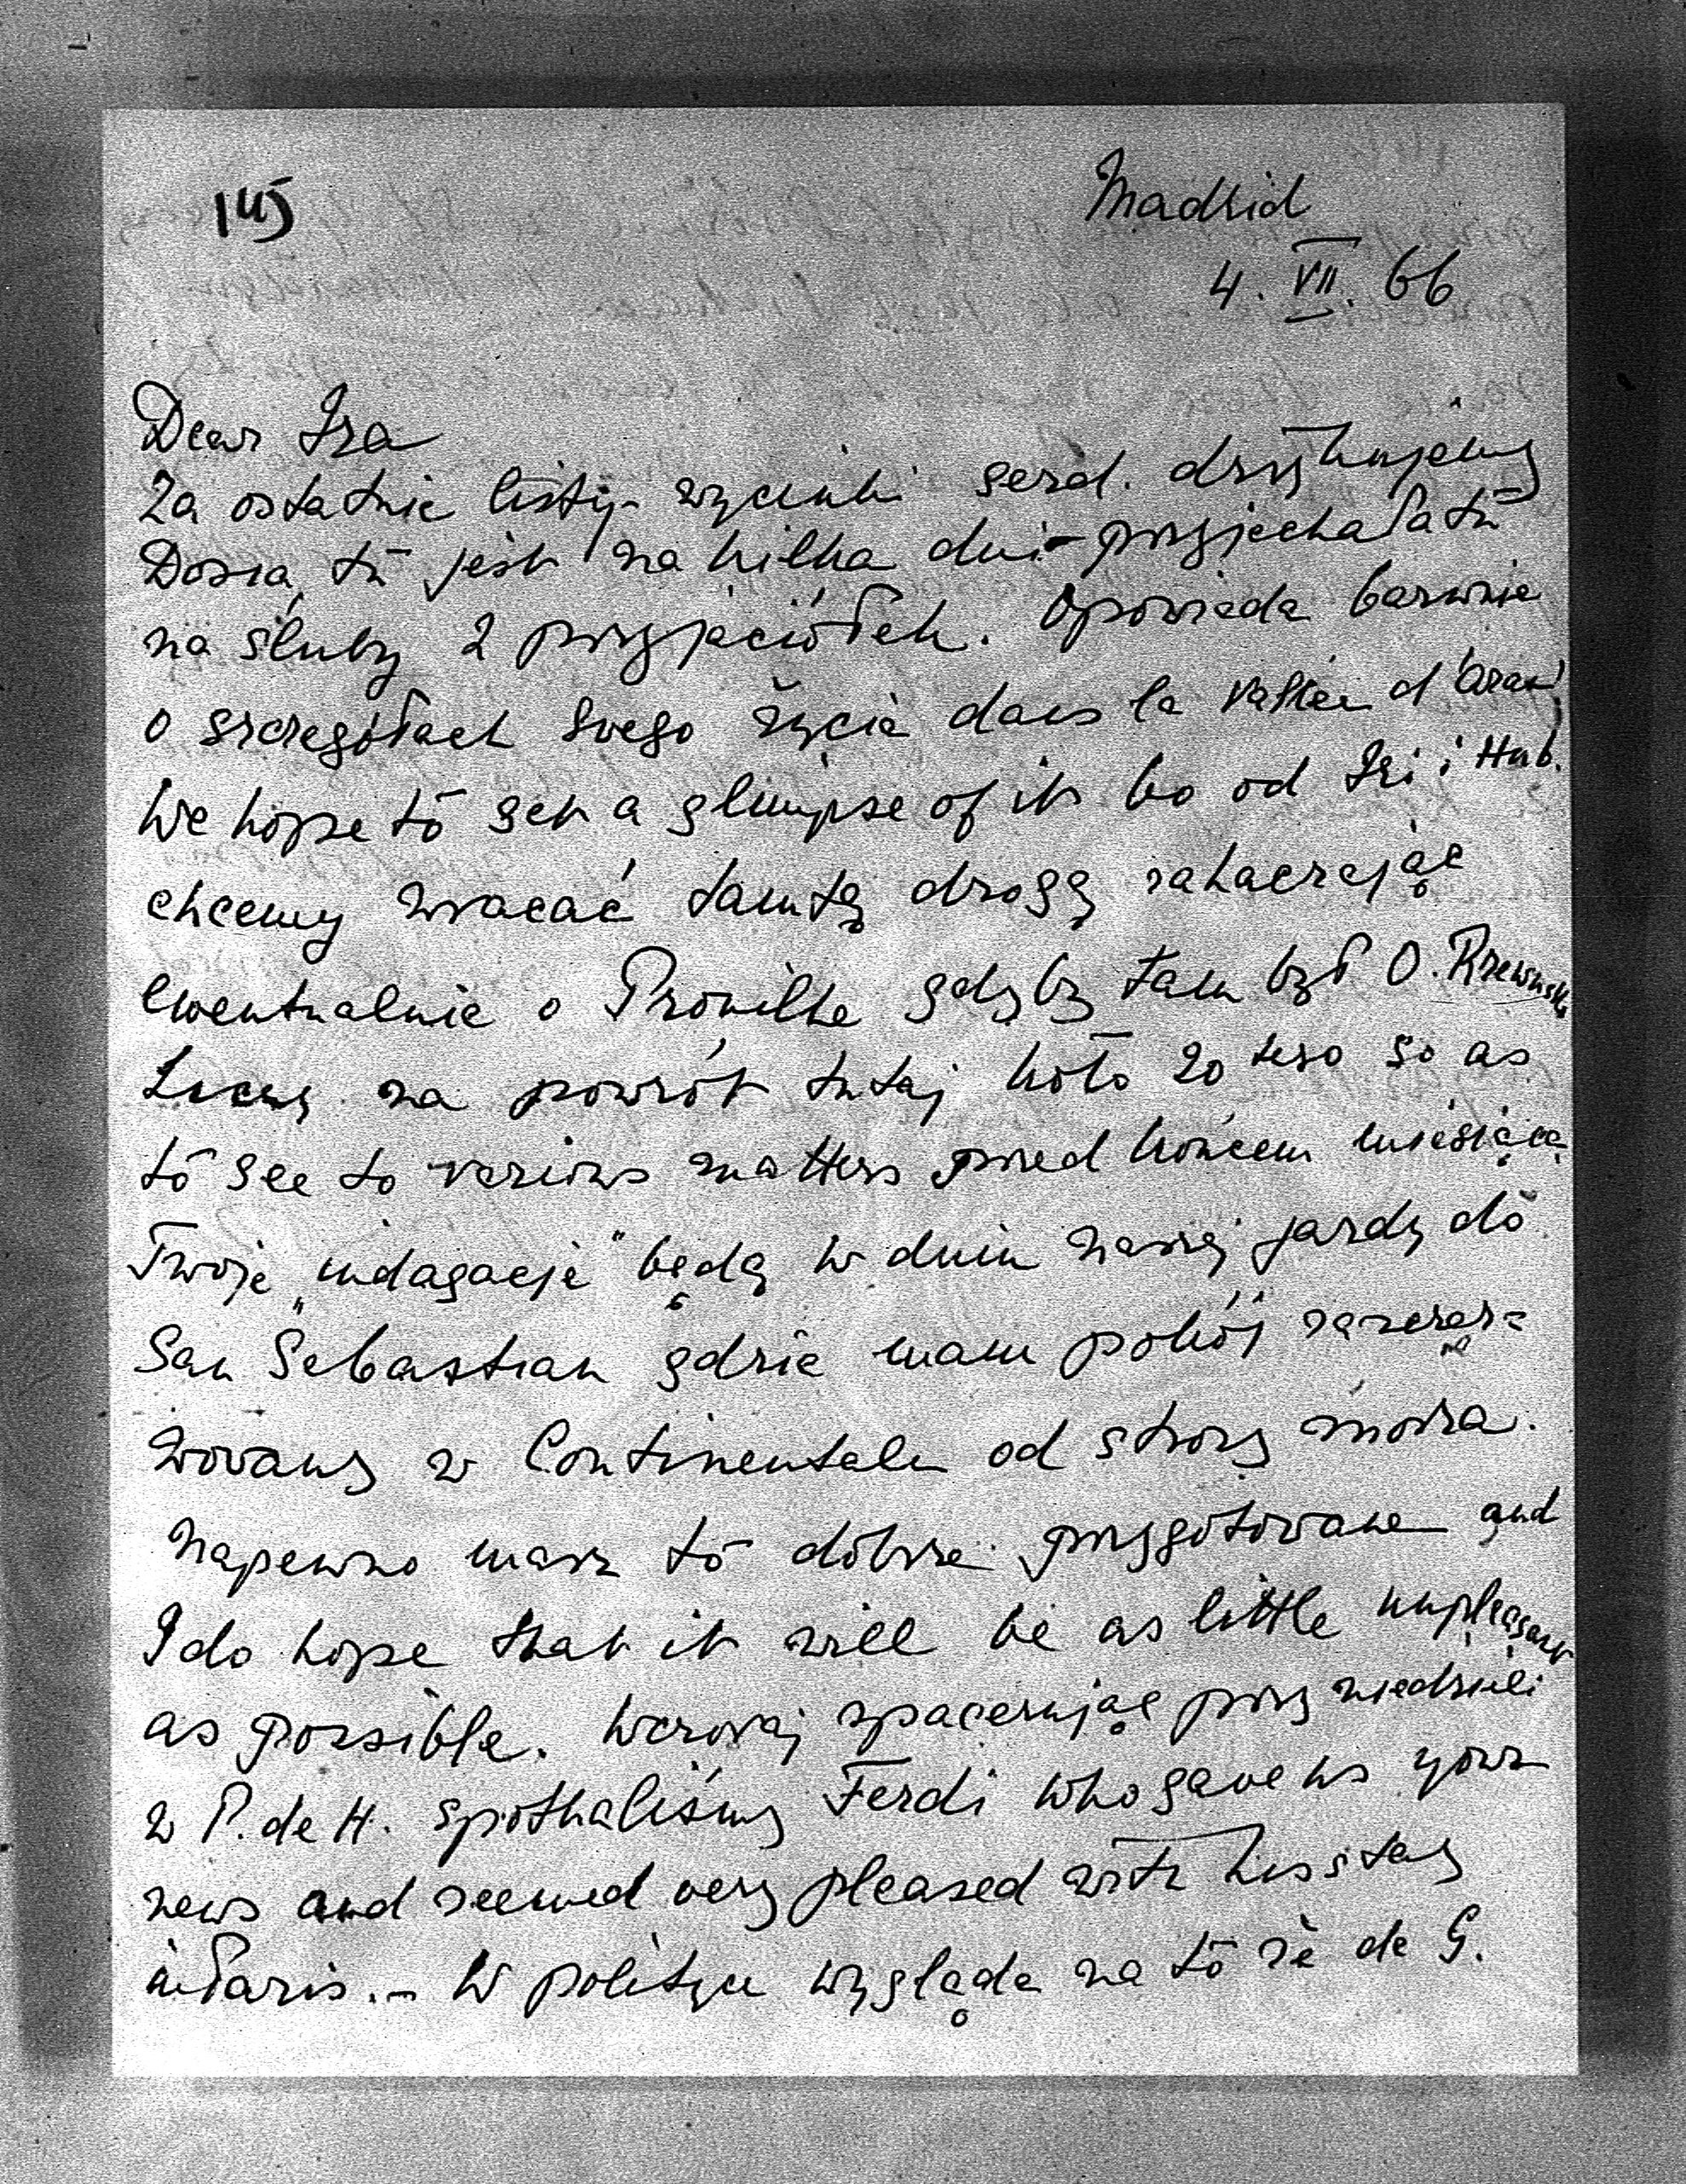 145
Madrid
4. VII. 66
Dear Iza
Za ostatnie listy - wycinki serd. dziękujemy
Dosia tu jest na kilka dni - przyjechała tu
na śluby 2 przyjaciółek. Opowiada barwnie
o szczegółach swego życia dans la vallée d'Aran
We hope to get a glimpse of it bo od Izi i Hub.
chcemy wracać tamtą drogą zahaczając
ewentualnie o Prouilhe gdyby tam był O. Rzewuski
Liczę na powrót tutaj koło 20 tego so as
to see to various matters przed końcem miesiąca
Twoje „indagacje” będą w dniu naszej jazdy do
San Sebastian gdzie mam pokój zarezer-
wowany w Continentalu od strony morza.
Napewno masz to dobrze przygotowane and
I do hope that it will be as little unpleasant
as possible. Wczoraj spacerując przy niedzieli
w P. de H. spotkaliśmy Ferdi who gave us your
news and seemed very pleased with his stay
in Paris. - W polityce wygląda na to że de G.